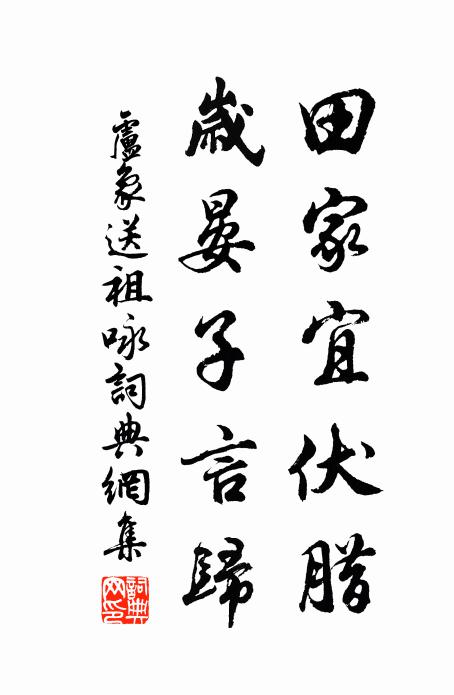 田家宜伏腊
歳晏子言歸
盧象送祖咏詞典網集
詞典網印